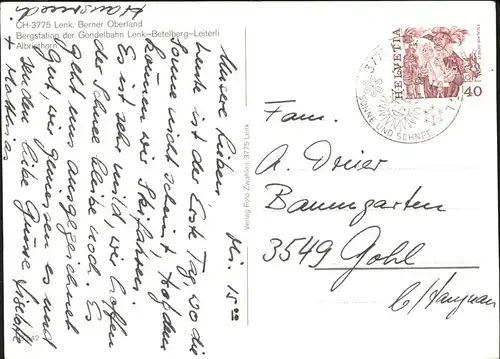 CH-3775 Lenk, Berner Oberland
Bergstation der Gondelbahn Lenk-Betelberg-Leiterli
Albristhorn
Mi. 15ºº
Unsere Lieben,
Heute ist der Erste Tag, wo die
Sonne nicht scheint, trotzdem
können wir Skifahren.
Es ist sehr mild, wir hoffen
der Schnee bleibe noch. Es
geht uns ausgezeichnet
gut, wir geniessen es und
senden liebe Grüsse Liselotte
+ Mathias
Hansruedi
Verlag Foto Zwahlen, 3775 Lenk
HELVETIA
40
SONNE UND SCHNEE
Fam.
A. Dreier
Baumgarten
3549 Gohl
b/Langnau